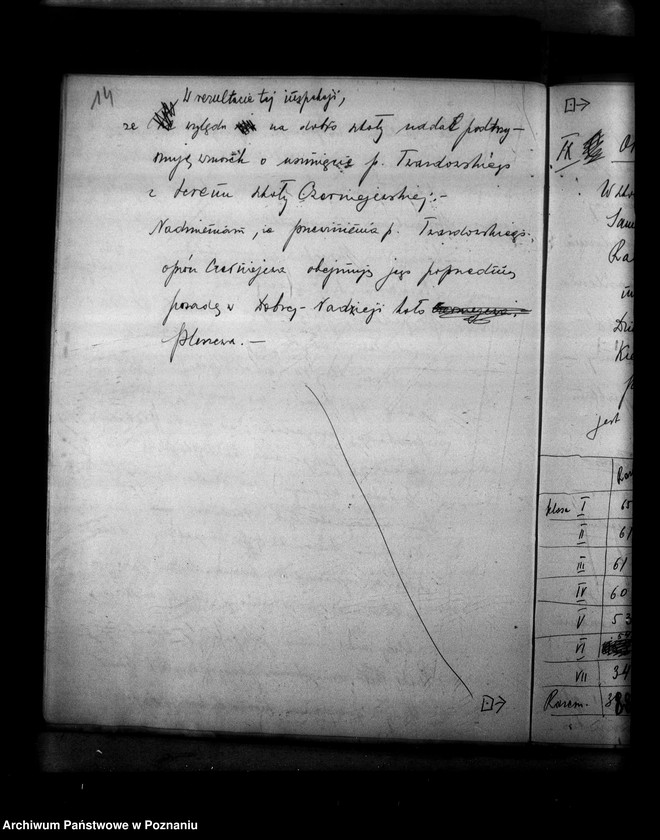 14
W rezultacie tej inspekcji,
ze względu na dobro szkoły nadal podtrzy-
muję wniosek o usunięcie p. Twardowskiego
z terenu szkoły Czerniejewskiej.-
Nadmieniam, że p. Twardowskiego
Czerniejewa obejmuje jego poprzednią
posadę w Dobrej-Nadzieji koło
Pleszewa. —
IX
klasa I
II
III 61
IV 60
V 53
VI
VII 34
Razem.
jest
Archiwum Państwowe w Poznaniu